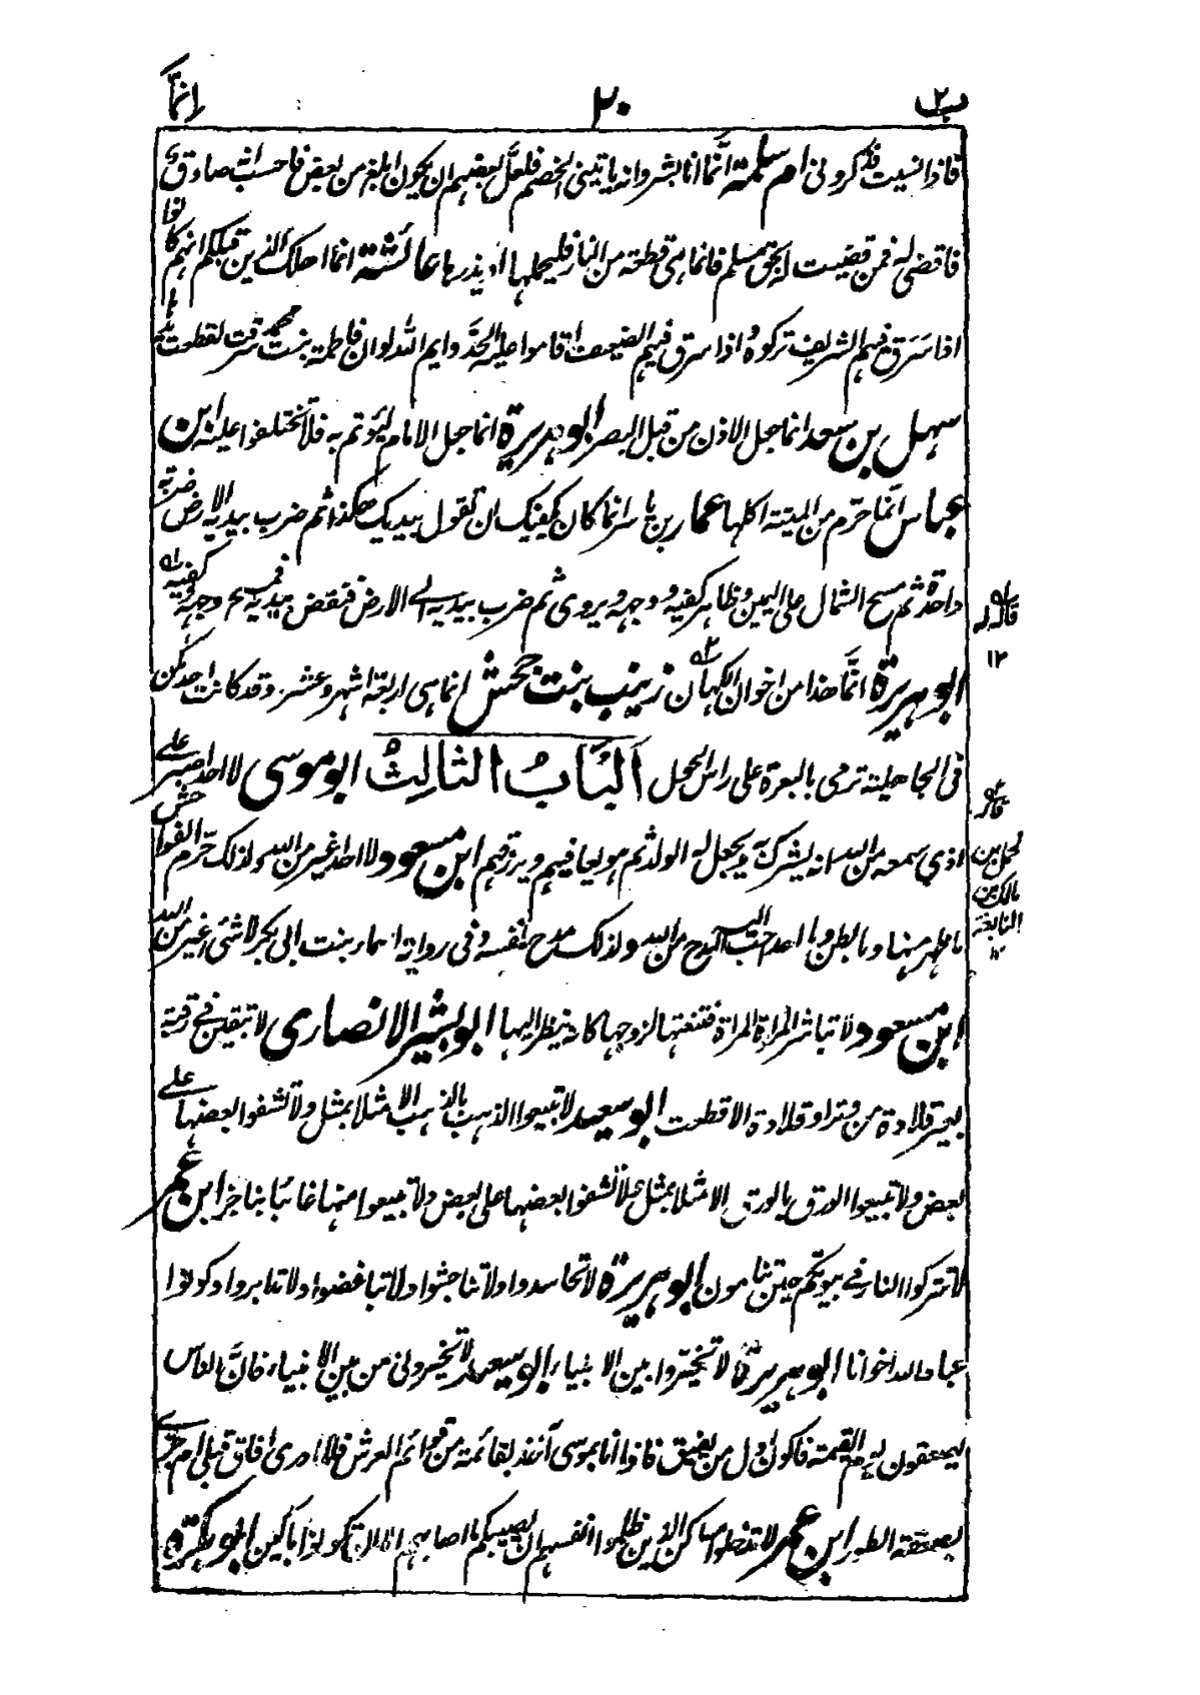 ب٢ ٢٠ انما
فاذا نسيت فذكروني ام سلمة انما انا بشر وانه ياتيني الخصم فلعل بعضهم ان يكون ابلغ من بعض فاحسب انه صادق
فاقضي له فمن قضيت له بحق مسلم فانما هي قطعة من النار فليحملها او يذرها عائشة انما اهلك الذين قبلكم انهم كانوا
اذا سرق فيهم الشريف تركوه واذا سرق فيهم الضعيف اقاموا عليه الحد وايم الله لو ان فاطمة بنت محمد سرقت لقطعت يدها
سهل بن سعد انما جعل الاذن من قبل البصر ابو هريرة انما جعل الامام ليؤتم به فلا تختلفوا عليه ابن
عباس انما حرم من الميتة اكلها عمار بن ياسر انما كان يكفيك ان تقول بيديك هكذا ثم ضرب بيديه الارض ضربة
واحدة ثم مسح الشمال على اليمين وظاهر كفيه ووجهه ويروى ثم ضرب بيديه الى الارض فنفض يديه فمسح وجهه وكفيه
ابو هريرة انما هذا من اخوان الكهان زينب بنت جحش انما هي اربعة اشهر وعشر وقد كانت احدكن
في الجاهلية ترمي بالبعرة على راس الحول الباب الثالث ابو موسى لا احد اصبر على
اذى سمعه من الله انه يشرك به ويجعل له الولد ثم هو يعافيهم ويرزقهم ابن مسعود لا احد اغير من الله ولذلك حرم الفواحش
ما ظهر منها وما بطن ولا احد احب اليه المدح من الله ولذلك مدح نفسه وفي رواية اسماء بنت ابي بكر لا شئ اغير من الله
ابن مسعود لا تباشر المراة المراة فتنعتها لزوجها كانه ينظر اليها ابو بشير الانصاري لا تبقين في رقبة
بعير قلادة من وتر او قلادة الا قطعت ابو سعيد لا تبيعوا الذهب بالذهب الا مثلا بمثل ولا تشفوا بعضها على
بعض ولا تبيعوا الورق بالورق الا مثلا بمثل ولا تشفوا بعضها على بعض ولا تبيعوا منها غائبا بناجز ابن عمر
لا تتركوا النار في بيوتكم حين تنامون ابو هريرة لا تحاسدوا ولا تناجشوا ولا تباغضوا ولا تدابروا وكونوا
عباد الله اخوانا ابو هريرة لا تخيروا بين الانبياء ابو سعيد لا تخيروني من بين الانبياء فان الناس
يصعقون يوم القيمة فاكون اول من يفيق فاذا انا بموسى آخذ بقائمة من قوائم العرش فلا ادري افاق قبلي ام جزي
بصعقة الطور ابن عمر لا تدخلوا مساكن الذين ظلموا انفسهم ان يصيبكم ما اصابهم الا ان تكونوا باكين ابو بكرة
قاله
١٢
قاله
لحمل بن
مالك بن
النابغة
١٢